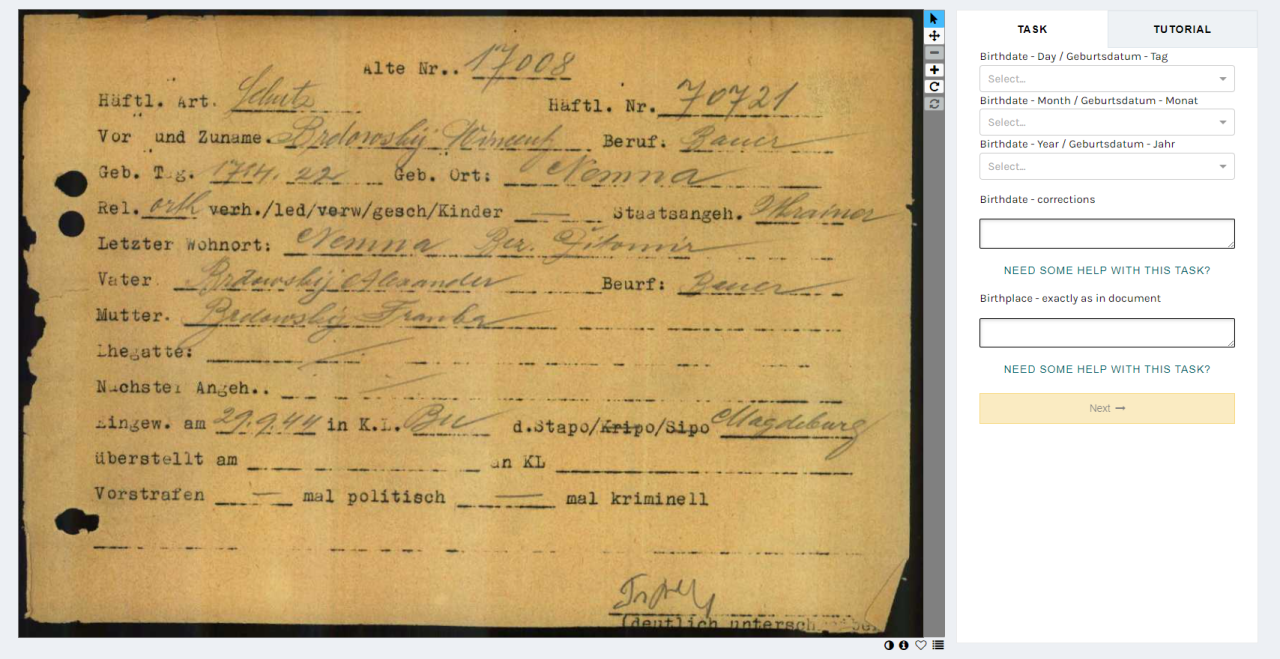 Alte Nr.. 17008
Häftl. Art. Schutz Häftl. Nr. 70721
Vor und Zuname. Brdowskij Wincenf Beruf: Bauer
Geb. Tag. 17.4. 22 Geb. Ort: Nemna
Rel. orth verh./led/verw/gesch/Kinder — Staatsangeh. Ukrainer
Letzter Wohnort: Nemna Bez. Žitomir
Vater Brdowskij Alexander Beurf: Bauer
Mutter. Brdowskij Franka
Ehegatte:
Nächster Angeh..
Eingew. am 29.9.44 in K.L. Bu d.Stapo/Kripo/Sipo Magdeburg
überstellt am an KL
Vorstrafen — mal politisch — mal kriminell
(deutlich untersch
TASK
TUTORIAL
Birthdate - Day / Geburtsdatum - Tag
Select...
Birthdate - Month / Geburtsdatum - Monat
Select...
Birthdate - Year / Geburtsdatum - Jahr
Select...
Birthdate - corrections
NEED SOME HELP WITH THIS TASK?
Birthplace - exactly as in document
NEED SOME HELP WITH THIS TASK?
Next